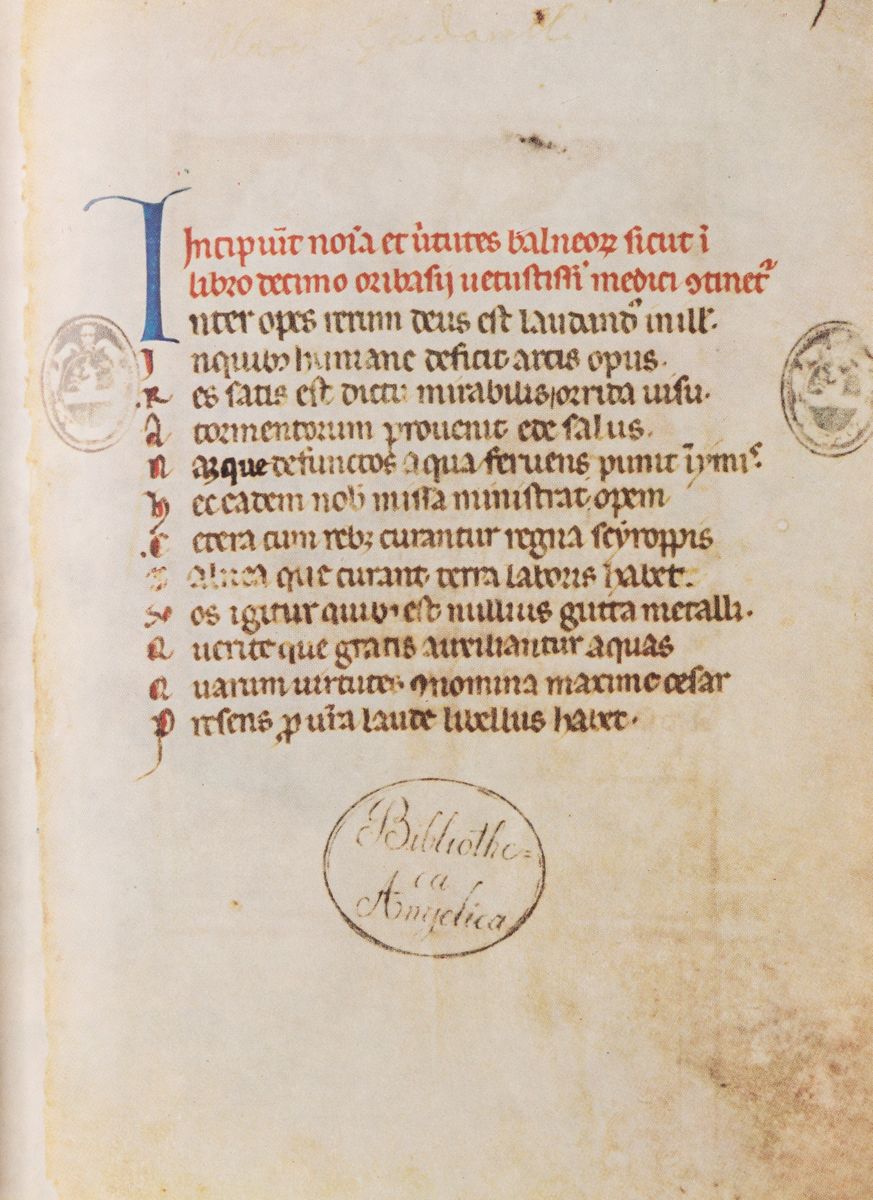 Incipiu͞t no͞ia et u͛tutes balneoꝝ sicut ī
libro decimo oribasij uetustissi medici ꝯtinet᷑
Inter opes rerum deus est laudand᷒ in illꝭ.
Inquibꝰ humane deficit artis opus.
Res satis est dictu mirabilis orrida uisu.
A tormentorum ꝓuenit ede salus.
Naꝫque defunctos aqua feruens punit īymis
Hec eadem nob missa ministrat opem
Cetera cum rebꝫ curantur regna seyroppis
Balnea que curant terra laboris habet.
Vos igitur quibꝰ est nullius gutta metalli.
Querite que gratis auxiliantur aquas
Quarum uirtutes ꝯ nomina maxime cesar
Presens ꝓ ur͞a laude libellus habet.
Bibliothe=
ca
Angelica